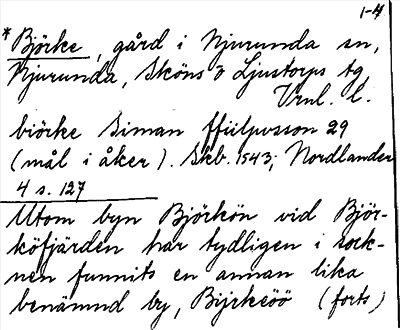 1-4
* Björke, gård i Njurunda sn,
Njurunda, Sköns o Ljustorps tg
Vrnl. l.
biörke Siman ffiilpusson 29
(mål i åker). Skb. 1543; Nordlander
4 s. 127
Utom byn Björkön vid Björ-
köfjärden har tydligen i sock-
nen funnits en annan lika
benämnd by, Bijrkeöö (forts)